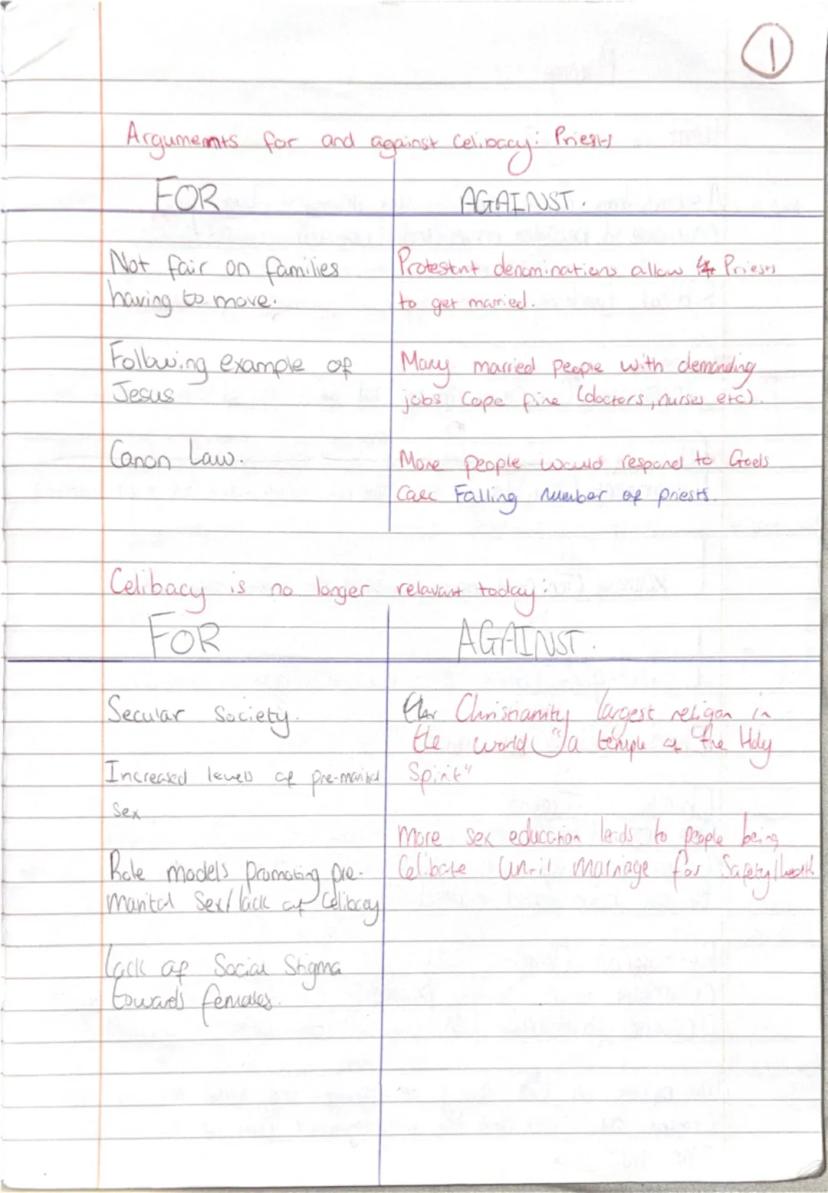 1
Arguments for and against Celibacy: Priests
FOR
Not fair on families
having to move.
Following example of
Jesus
Canon Law.
AGAINST.
Protestnt denominations allow Priests
to get married.
Many married people with demanding
jobs cope fine (doctors, nurses etc).
More people would respond to Gods
Call Falling number of priests.
Celibacy is no longer relavant today:
FOR
Secular Society.
Increased levels of pre-marital
sex
Role models promoting pre-
marital sex/lack of Celibacy
lack of Social Stigma
towards females.
AGAINST.
Christianity largest religon in
the world "a temple of the Holy
Spirit"
More sex education leads to people being
Celibate until marriage for Safety/health